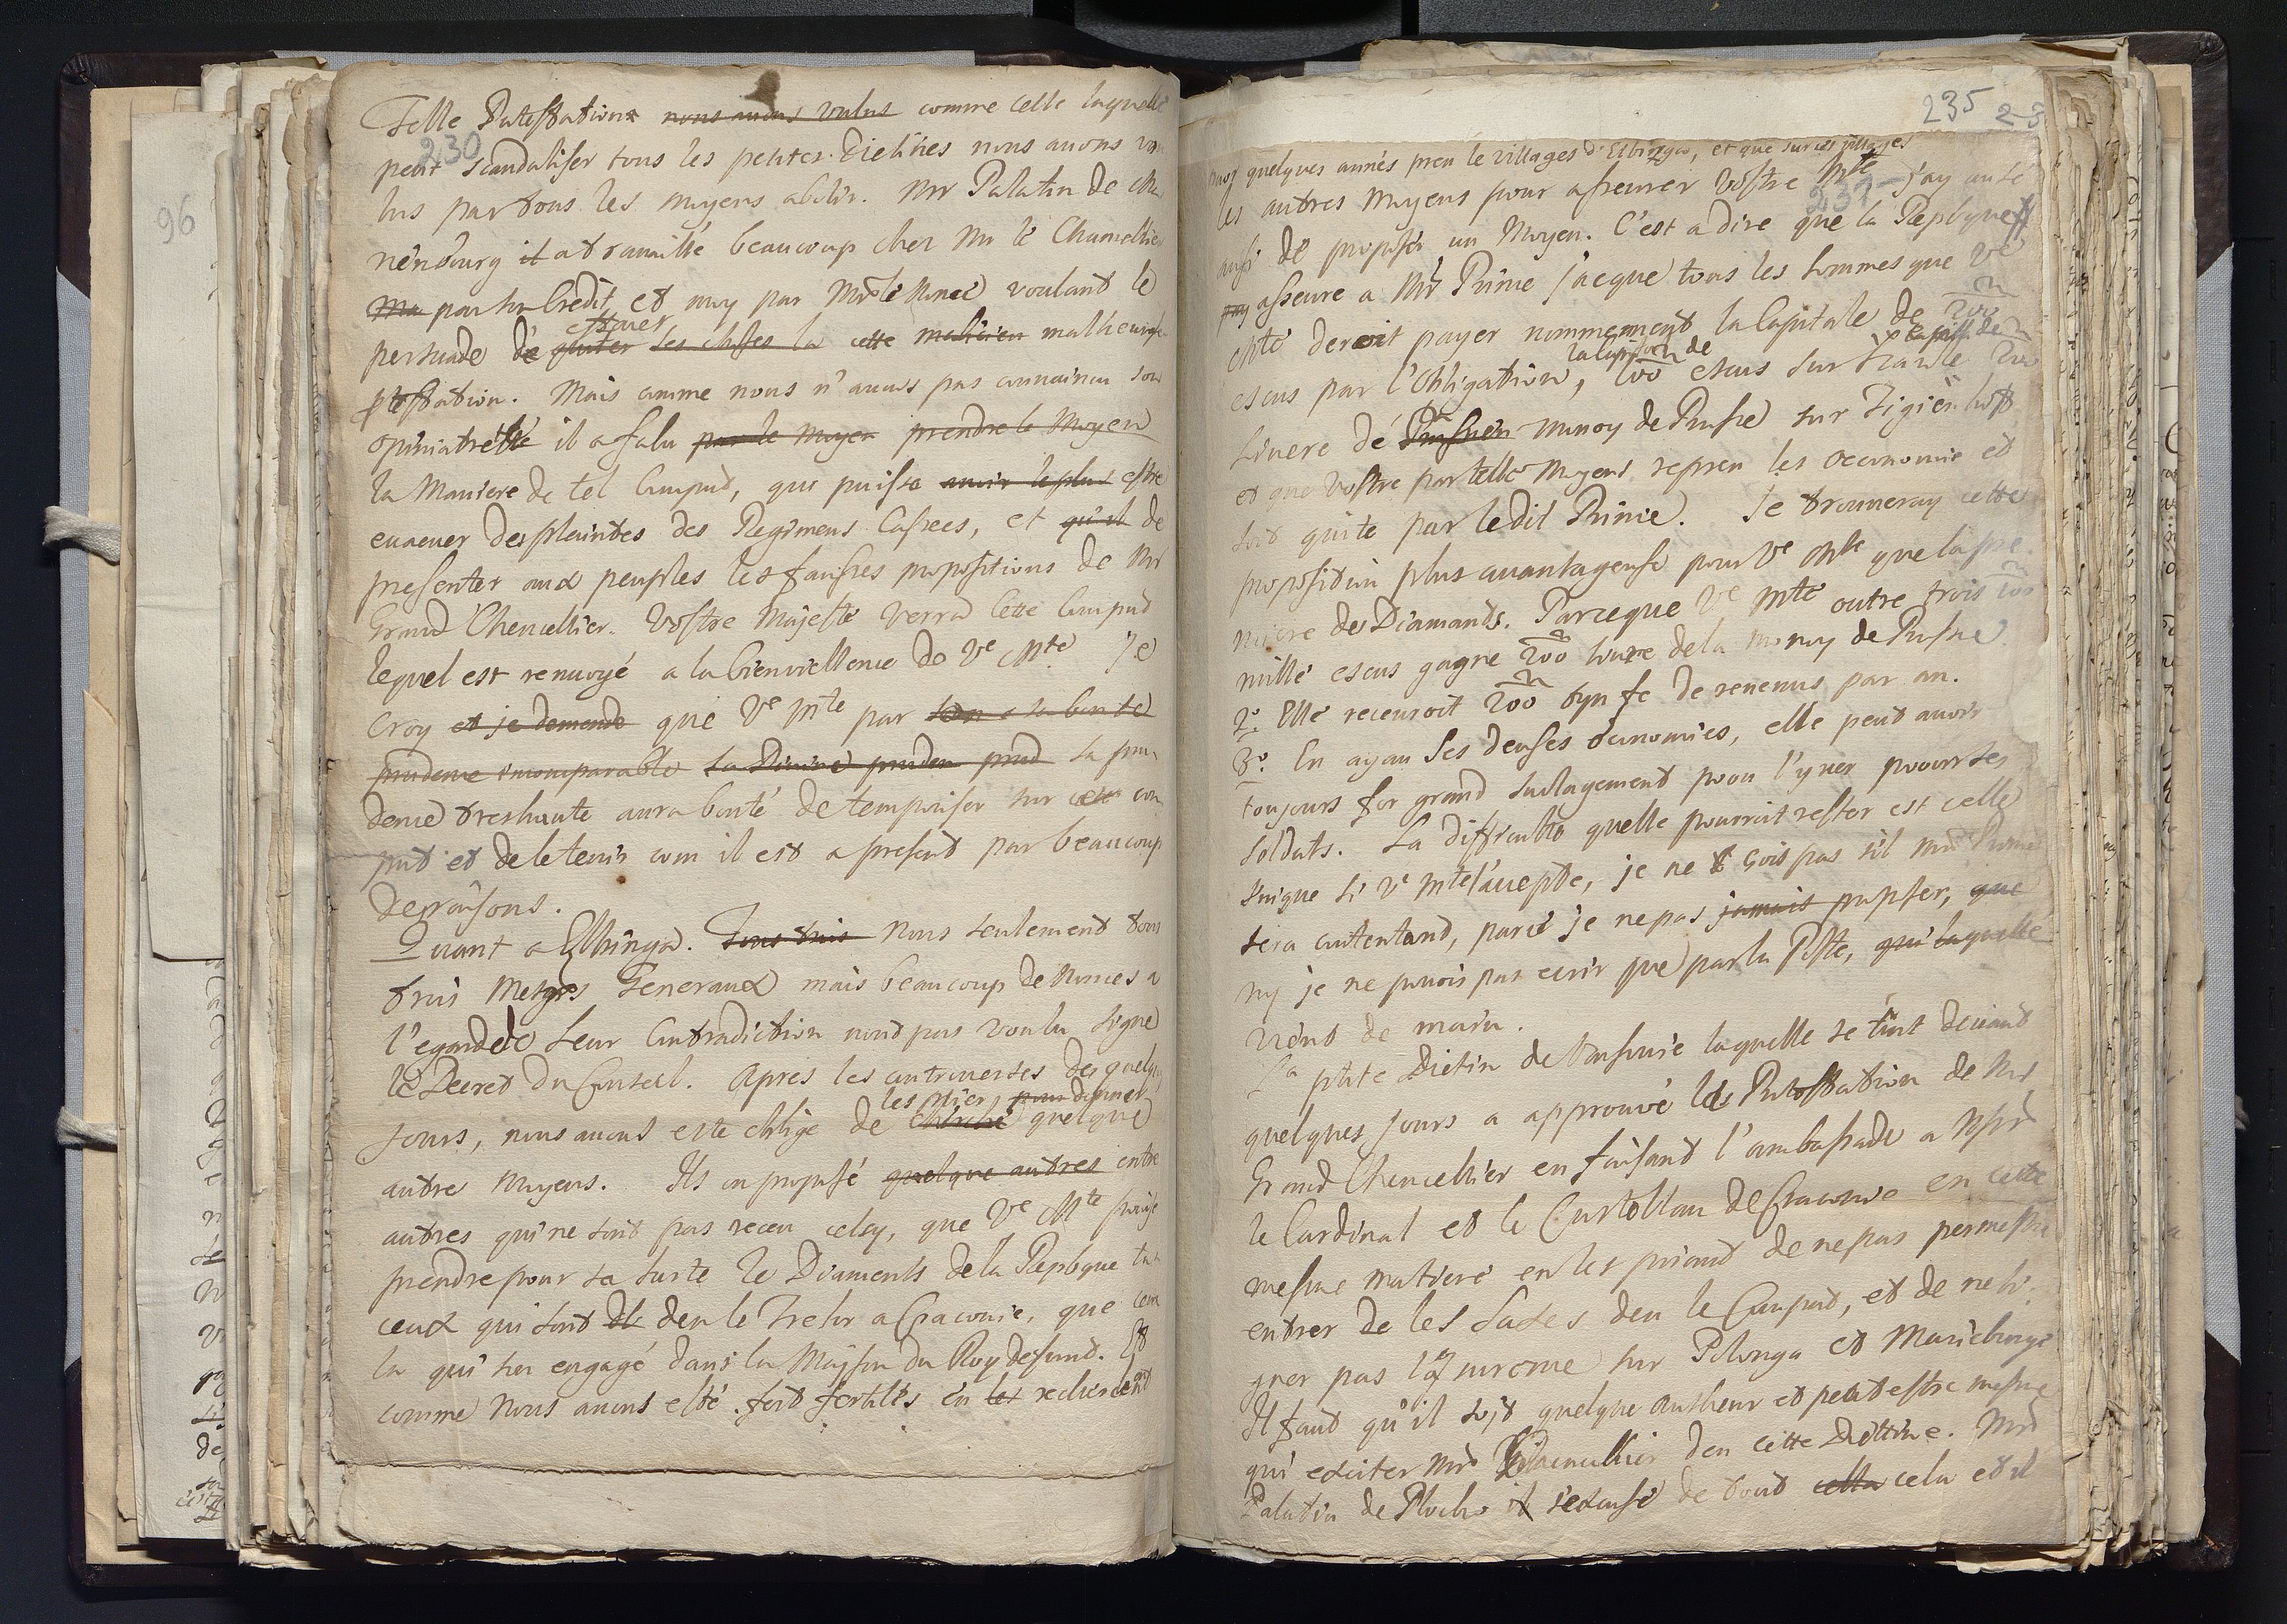 Telle Protestation nous auons voulus comme celle laquelle
230
peut scandaliser tous les petites Dietines nous auons vou
lus par tous les moyens abolir. Mr Palatin de Ma
rienbourg il a trauaillé beaucoup cher Mr le Chancellier
Ma par son Credit et moy par Mr le Nonce voulant le
estouer
persuade de quiter les choses la cette malicieu malheureuse
protestation. Mais comme nous n'auons pas conuaincu son
opiniatreté il a falu par le moyen prendre le Moyen
la Maniere de tel Comput, qui puisse auoir le plus estre
euacuer des plaintes des Regimens Cassees, et qu'il de
presenter aux peuples les fausses propositions de Mr
Grand Chencellier. Vostre Majesté verra Cette Comput
lequel est renuoyé a la bienueillence de Ve Mté Je
croy et je demande que Ve Mte par son sa bonté
prudence incomparable sa Diuine pruden prud sa pru
dence treshaute aura bonté de temporiser sur cette com
put et de le tenir com il est a present par beaucoup
de raisons.
Quant a Elbinga. Tous trois Nous seulement tous
trois Messrs Generaux mais beaucoup de Nonces a
l'egard de leur Contradiction n'ont pas voulu signé
le Decret du Conseil. Apres les controuerses des quelqu
les plier pour donner
jours, nous auons esté obligé de cherché quelque
autre moyens. Ils on proposé quelque autres entre
autres qui ne sont pas receu celsy, que Ve Mte puisse
prendre pour sa surte le Diaments de la Repbque tan
ceux qui sont den le Tresor a Cracouie, que cem
la qui son engagé dans la Majson du Roy defund. Et
comme nous auons esté fort fertiles en les recherchent
235
pour quelques annés pren le villages d'Elbinga, et que sur ces villages
les autres moyens pour asseurer Vostre Mté j'ay ause
231
aussi de proposer un Moyen. C'est a dire que la Repbque
pay asseure a Mr Prince Jacque tous les sommes que Ve
Mté deroit payer nommement la Capitale de 200
escus par l'Obligation, la Capitale de 100 escus sur
Livere de Prussien monoy de Prusse sur Tigienhoff
et que Vostre par telle moyens repren les oeconomie et
soit quite par ledit Prince. Je trouueray cette
proposition plus auantageuse pour Ve Mte que la pre
miere des Diamands. Parceque Ve Mté outre trois 100
mille escus gagne 200 liure de la monoy de Prusse
2o. Elle receuroit 200 tynfe de reuenus par an.
3o. En ayan ses deuses oeconomies, elle peut auoir
toujours for grand soulagement pour l'yuer pour ses
soldats. La difficulté quelle pourroit rester est celle
suique si Ve Mte l'accepte, je ne scois pas sil Mr Prince
sera contentand, parce je ne pas jamais propser, que
ny je ne pouois pas ecrir que par la Poste, qui laquelle
vient de main.
La ptite Dietin de Varsouie laquelle se tint deuant
quelques jours a approuvé les Protestation de Mr
Grand Chencellier en faisant l'ambassade a Msr
le Cardinal et le Castellan de Cracouie en cette
mesme matiere en les priand de ne pas permettre
entrer de les dans den le Comput, et de ne si
gner pas l'assurence sur Polonga et Marieburge
Il faut qu'il soit quelque autheur et peut estre mesme
qui exciter Mr Chencellier den cette Diettine. Mr
Palatin de Plocko il s'excuse de tout cella cela et il